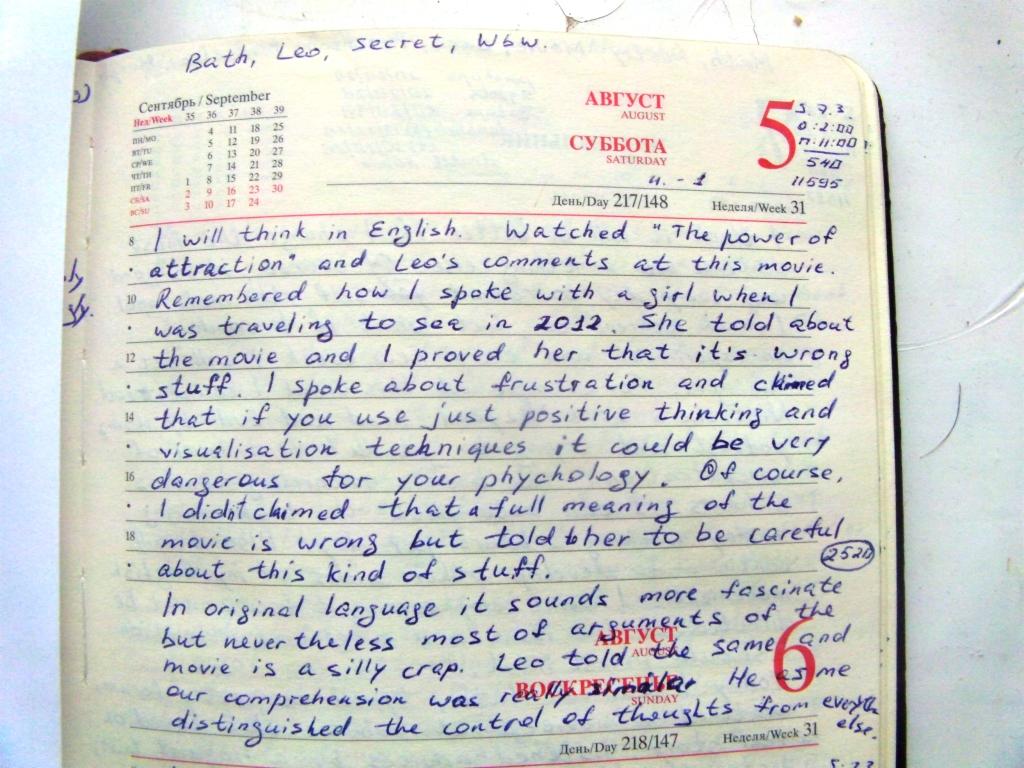 Bath, Leo, secret, Wbw.
Сентябрь / September
Нед/Week 35 36 37 38 39
ПН/MO 4 11 18 25
ВТ/TU 5 12 19 26
СР/WE 6 13 20 27
ЧТ/TH 7 14 21 28
ПТ/FR 1 8 15 22 29
СБ/SA 2 9 16 23 30
ВС/SU 3 10 17 24
АВГУСТ
AUGUST
СУББОТА
SATURDAY
5
5.7.3.
0:2:00
П:11:00
540
11595
и. - 1
День/Day 217/148
Неделя/Week 31
8 I will think in English. Watched "The power of
attraction" and Leo's comments at this movie.
10 Remembered how I spoke with a girl when I
was traveling to sea in 2012. She told about
12 the movie and I proved her that it's wrong
stuff. I spoke about frustration and
14 that if you use just positive thinking and
visualisation techniques it could be very
16 dangerous for your phychology. Of course,
I didn't claimed that a full meaning of the
18 movie is wrong but told her to be careful
about this kind of stuff.
In original language it sounds more fascinate
but nevertheless most of arguments of the
movie is a silly crap. Leo told the same and
our comprehension was really similar. He as me
distinguished the control of thoughts from everyth
else.
АВГУСТ
AUGUST
ВОСКРЕСЕНЬЕ
SUNDAY
6
День/Day 218/147
Неделя/Week 31